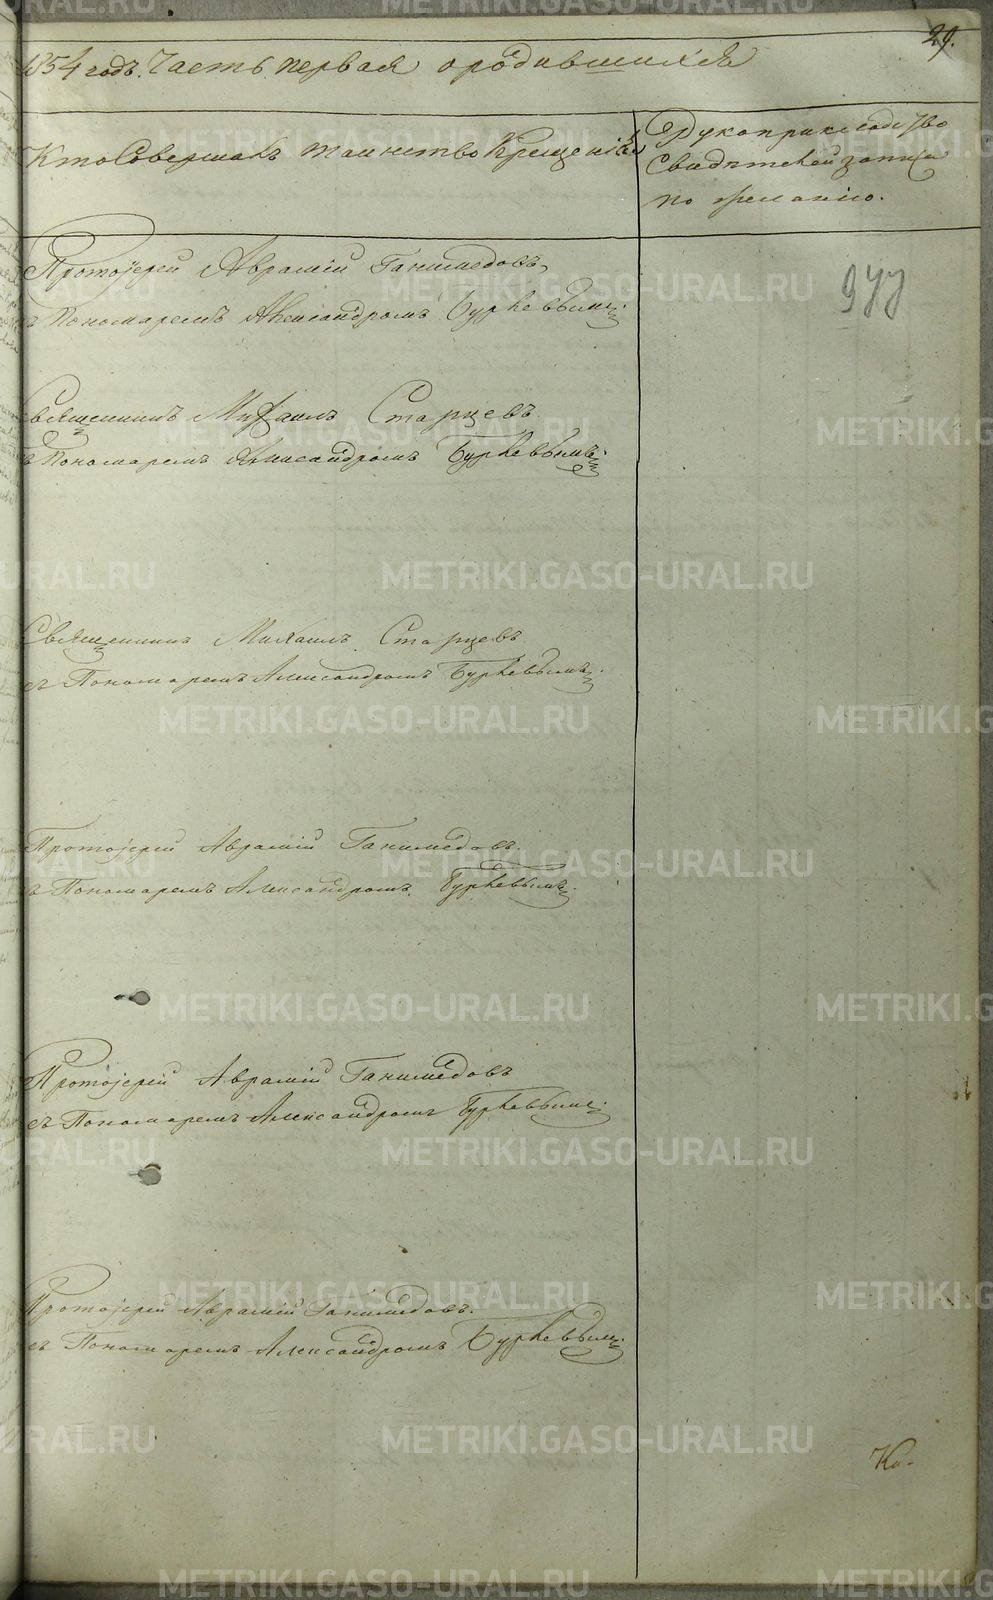 29.
1854 годъ. Часть первая о родившихся
Кто Совершалъ таинство Крещенія
Рукоприкладство
Свидѣтелей записи
по желанію.
Протоіерей Аврамій Ганимедовъ,
съ Пономаремъ Александромъ Буркевымъ.
977
Священникъ Михаилъ Старцевъ
съ Пономаремъ Александромъ Буркевымъ.
Священникъ Михаилъ Старцевъ
съ Пономаремъ Александромъ Буркевымъ.
Протоіерей Аврамій Ганимедовъ.
съ Пономаремъ Александромъ Буркевымъ.
Протоіерей Аврамій Ганимедовъ
съ Пономаремъ Александромъ Буркевымъ.
Протоіерей Аврамій Ганимедовъ.
съ Пономаремъ Александромъ Буркевымъ.
METRIKI.GASO-URAL.RU